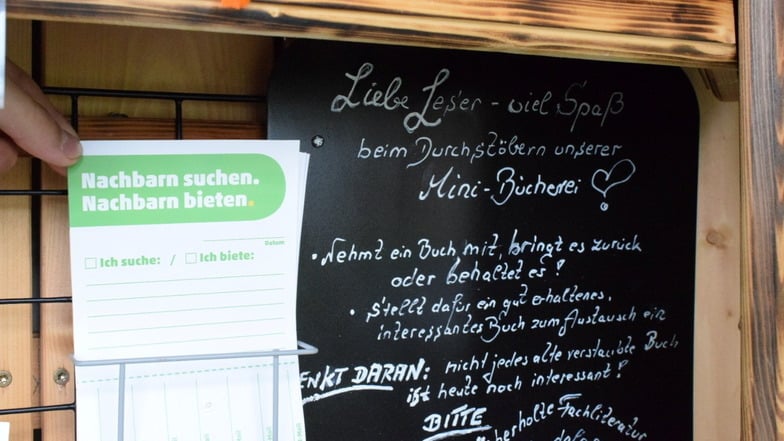 Nachbarn suchen.
Nachbarn bieten.
Datum
Ich suche: / Ich biete:
Liebe Leser - viel Spaß
beim Durchstöbern unserer
Mini-Bücherei
• Nehmt ein Buch mit, bringt es zurück
oder behaltet es!
• Stellt dafür ein gut erhaltenes,
interessantes Buch zum Austausch ein
ENKT DARAN: nicht jedes alte verstaubte Buch
ist heute noch interessant!
BITTE
überholte Fachliteratur